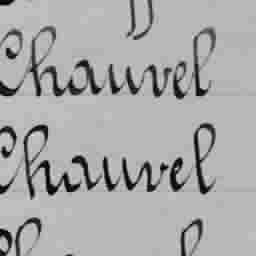 Chauvel
Chauvel